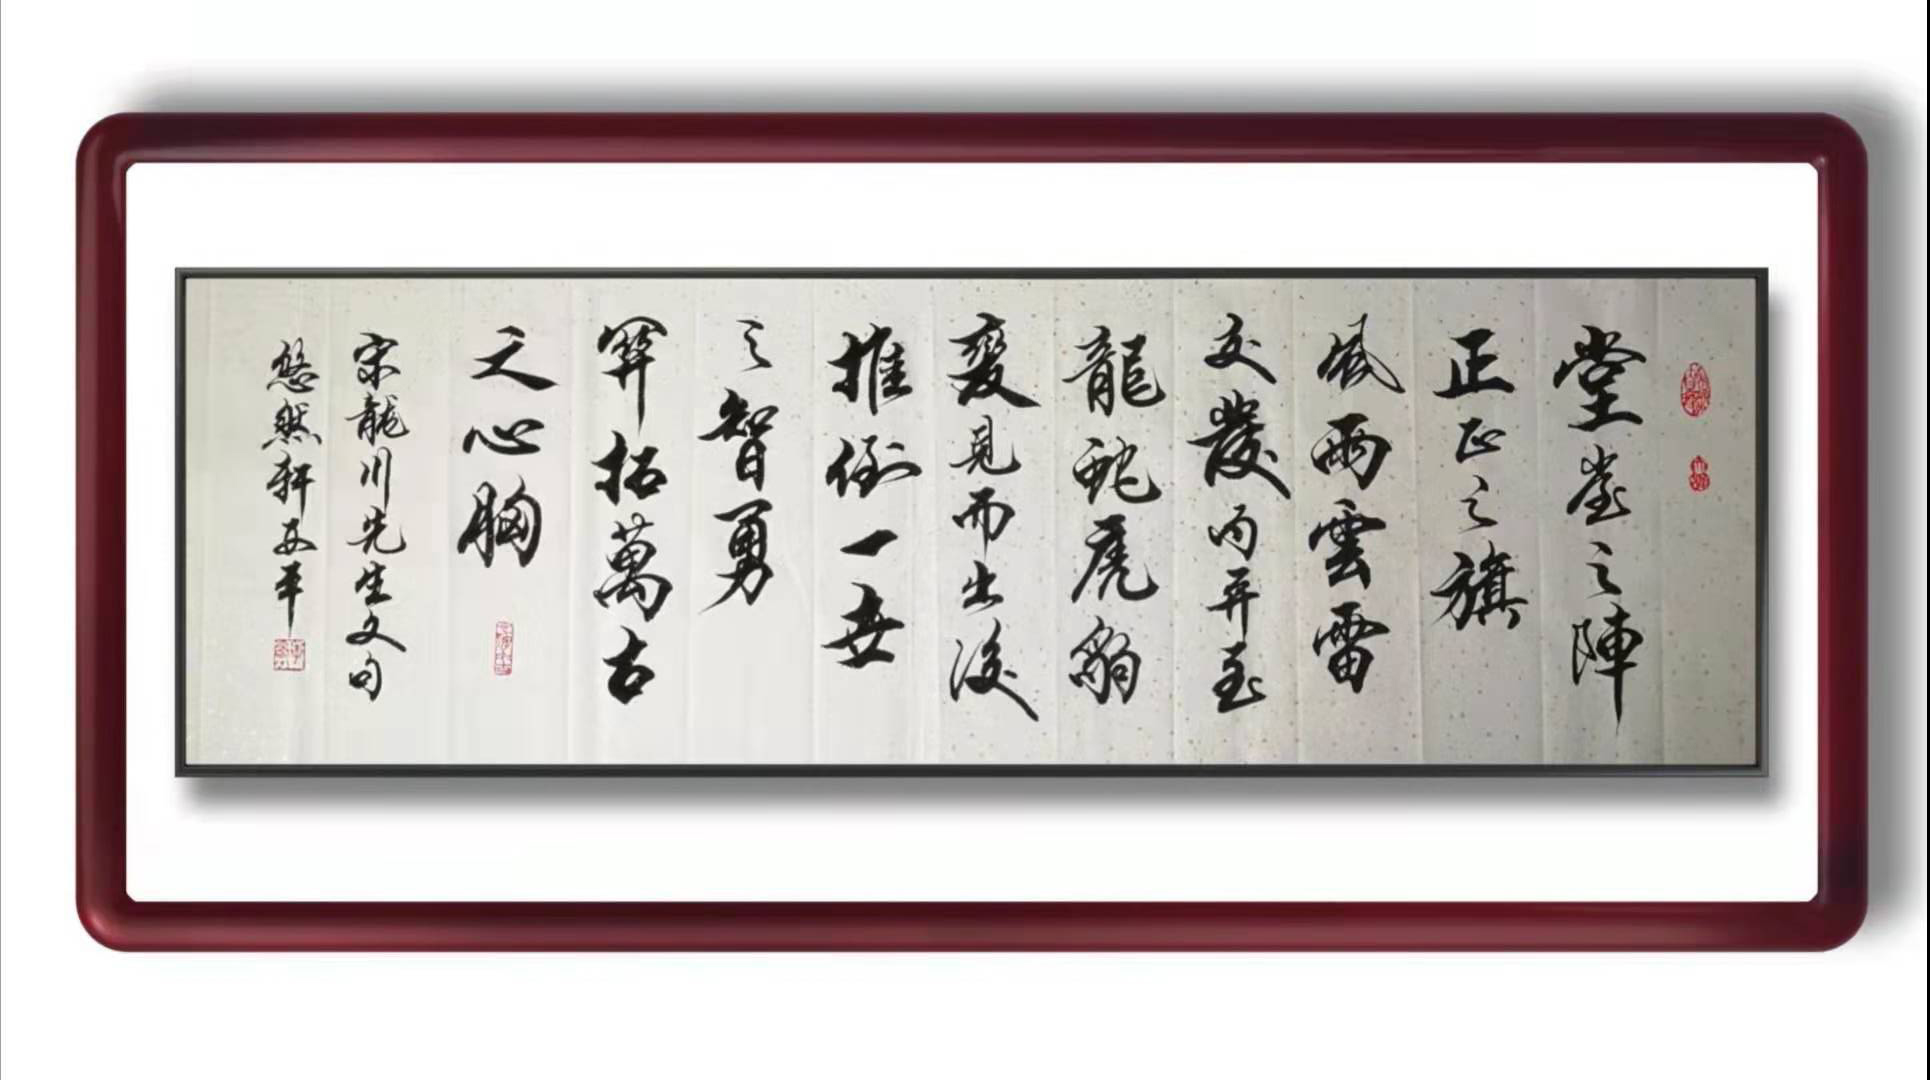 堂堂之陣
正正之旗
風雨雲雷
交發而并至
龍蛇虎豹
變見而出沒
推倒一世
之智勇
開拓萬古
之心胸
宋龍川先生文句
悠然軒